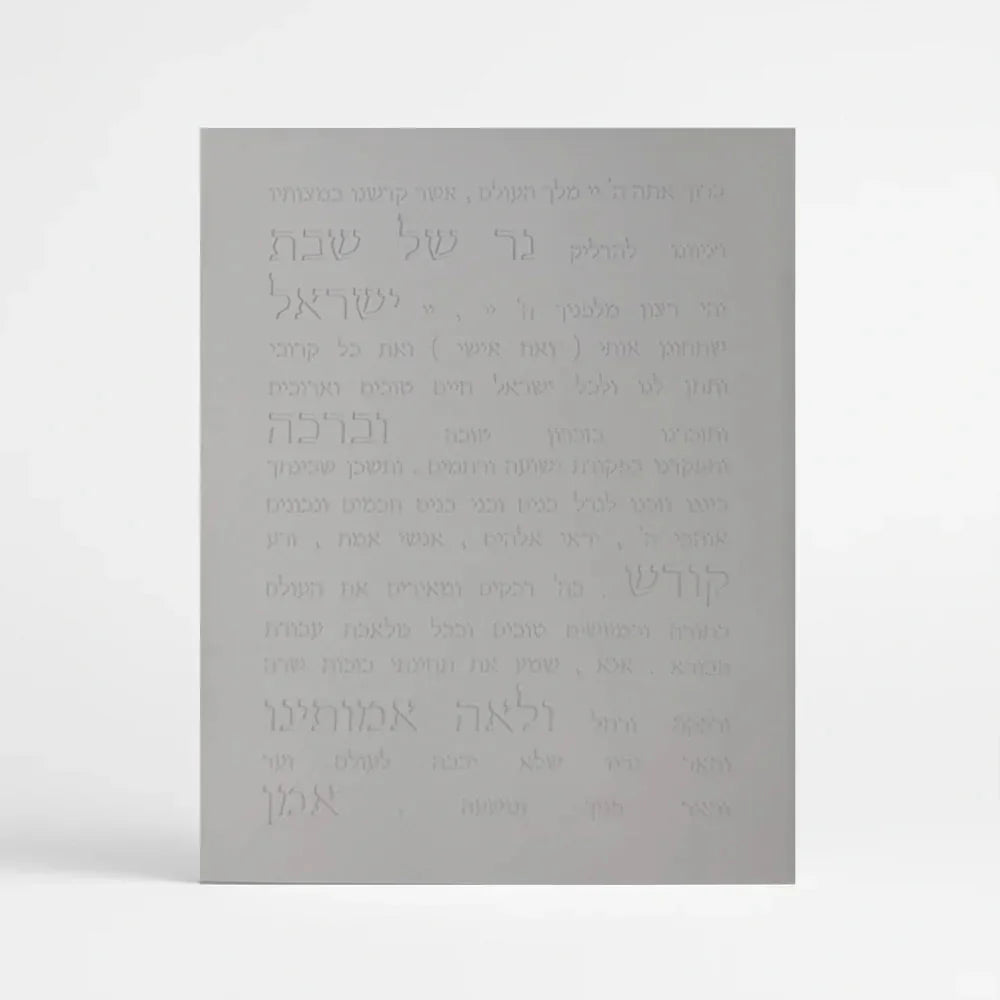 ברוך אתה ה' יי מלך העולם , אשר קדשנו במצותיו
וציוונו להדליק נר של שבת
יהי רצון מלפניך ה' יי , יי ישראל
שתחונן אותי ( ואת אישי ) ואת כל קרובי
ותתן לנו ולכל ישראל חיים טובים וארוכים
ותזכרנו בזכרון טובה וברכה
ותפקדנו בפקודת ישועה ורחמים . ותשכן שכינתך
בינינו וזכנו לגדל בנים ובני בנים חכמים ונבונים
אוהבי ה' , יראי אלהים , אנשי אמת , זרע
קודש , בה' דבקים ומאירים את העולם
בתורה ובמעשים טובים ובכל מלאכת עבודת
הבורא . אנא , שמע את תחינתי בזכות שרה
ורבקה ורחל ולאה אמותינו
והאר נרינו שלא יכבה לעולם ועד
והאר פניך ונושעה , אמן